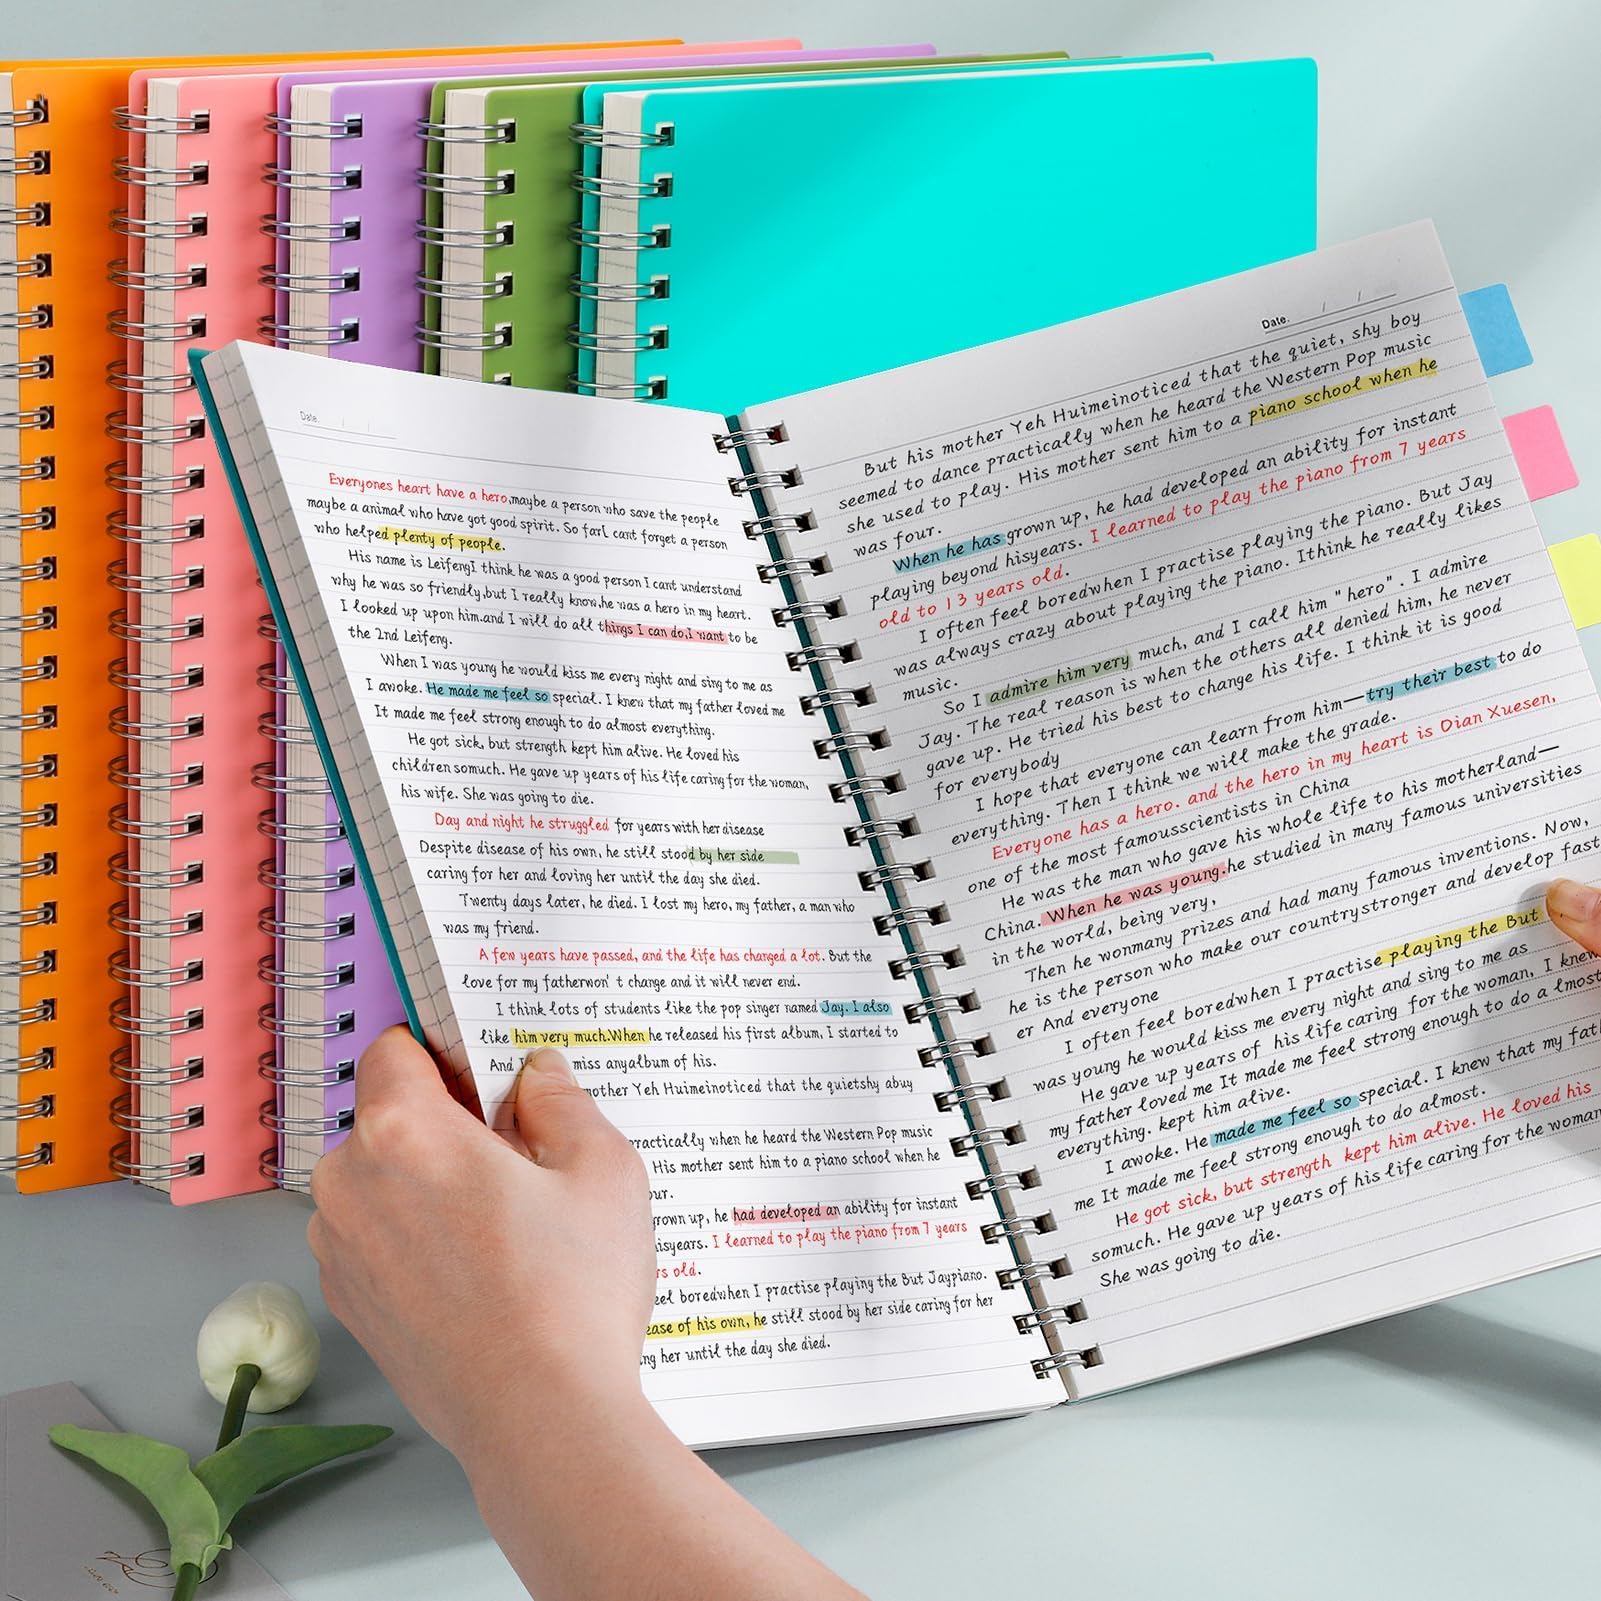 Date.
Everyones heart have a hero,maybe a person who save the people
maybe a animal who have got good spirit. So farI cant forget a person
who helped plenty of people.
His name is LeifengI think he was a good person I cant understand
why he was so friendly,but I really know,he was a hero in my heart.
I looked up upon him.and I will do all things I can do,I want to be
the 2nd Leifeng.
When I was young he would kiss me every night and sing to me as
I awoke. He made me feel so special. I knew that my father loved me
It made me feel strong enough to do almost everything.
He got sick, but strength kept him alive. He loved his
children somuch. He gave up years of his life caring for the woman,
his wife. She was going to die.
Day and night he struggled for years with her disease
Despite disease of his own, he still stood by her side
caring for her and loving her until the day she died.
Twenty days later, he died. I lost my hero, my father, a man who
was my friend.
A few years have passed, and the life has changed a lot. But the
love for my fatherwon't change and it will never end.
I think lots of students like the pop singer named Jay. I also
like him very much.When he released his first album, I started to
And I miss anyalbum of his.
mother Yeh Huimeinoticed that the quietshy abuy
practically when he heard the Western Pop music
His mother sent him to a piano school when he
our.
grown up, he had developed an ability for instant
hisyears. I learned to play the piano from 7 years
rs old.
eel boredwhen I practise playing the But Jaypiano.
ease of his own, he still stood by her side caring for her
ng her until the day she died.
Date.
But his mother Yeh Huimeinoticed that the quiet, shy boy
seemed to dance practically when he heard the Western Pop music
she used to play. His mother sent him to a piano school when he
was four.
When he has grown up, he had developed an ability for instant
playing beyond hisyears. I learned to play the piano from 7 years
old to 13 years old.
I often feel boredwhen I practise playing the piano. But Jay
was always crazy about playing the piano. Ithink he really likes
music.
So I admire him very much, and I call him "hero". I admire
Jay. The real reason is when the others all denied him, he never
gave up. He tried his best to change his life. I think it is good
for everybody
I hope that everyone can learn from him—try their best to do
everything. Then I think we will make the grade.
Everyone has a hero. and the hero in my heart is Oian Xuesen,
one of the most famousscientists in China
He was the man who gave his whole life to his motherland—
China. When he was young.he studied in many famous universities
in the world, being very,
Then he wonmany prizes and had many famous inventions. Now,
he is the person who make our countrystronger and develop fast
er And everyone
I often feel boredwhen I practise playing the But
was young he would kiss me every night and sing to me as
He gave up years of his life caring for the woman, I knew
my father loved me It made me feel strong enough to do a lmost
everything. kept him alive.
I awoke. He made me feel so special. I knew that my fat
me It made me feel strong enough to do almost.
He got sick, but strength kept him alive. He loved his
somuch. He gave up years of his life caring for the woman
She was going to die.